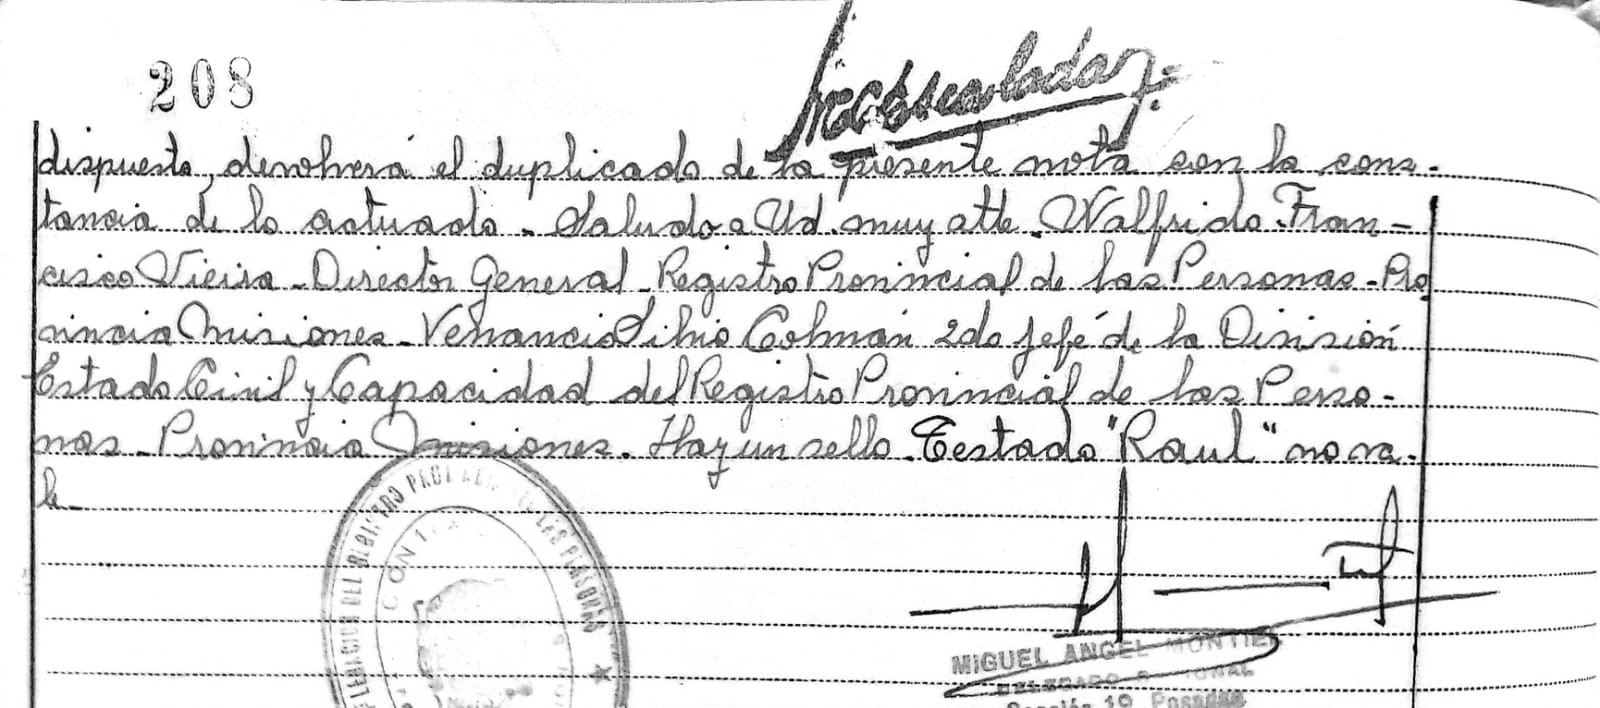 208
dispuesto, devolverá el duplicado de la presente nota con la cons-
tancia de lo actuado. Saludo a Ud. muy atte. Walfrido Fran-
cisco Vieira - Director General - Registro Provincial de las Personas - Pro
vincia Misiones - Venancio Silvio Colmán 2do Jefé de la División
Estado Civil y Capacidad del Registro Provincial de las Perso-
nas - Provincia Misiones. Hay un sello. Testado "Raul" no va-
le -
DEL REGISTRO DE LAS PERSONAS
MIGUEL ANGEL
DELEGADO
Sección 1º Posadas